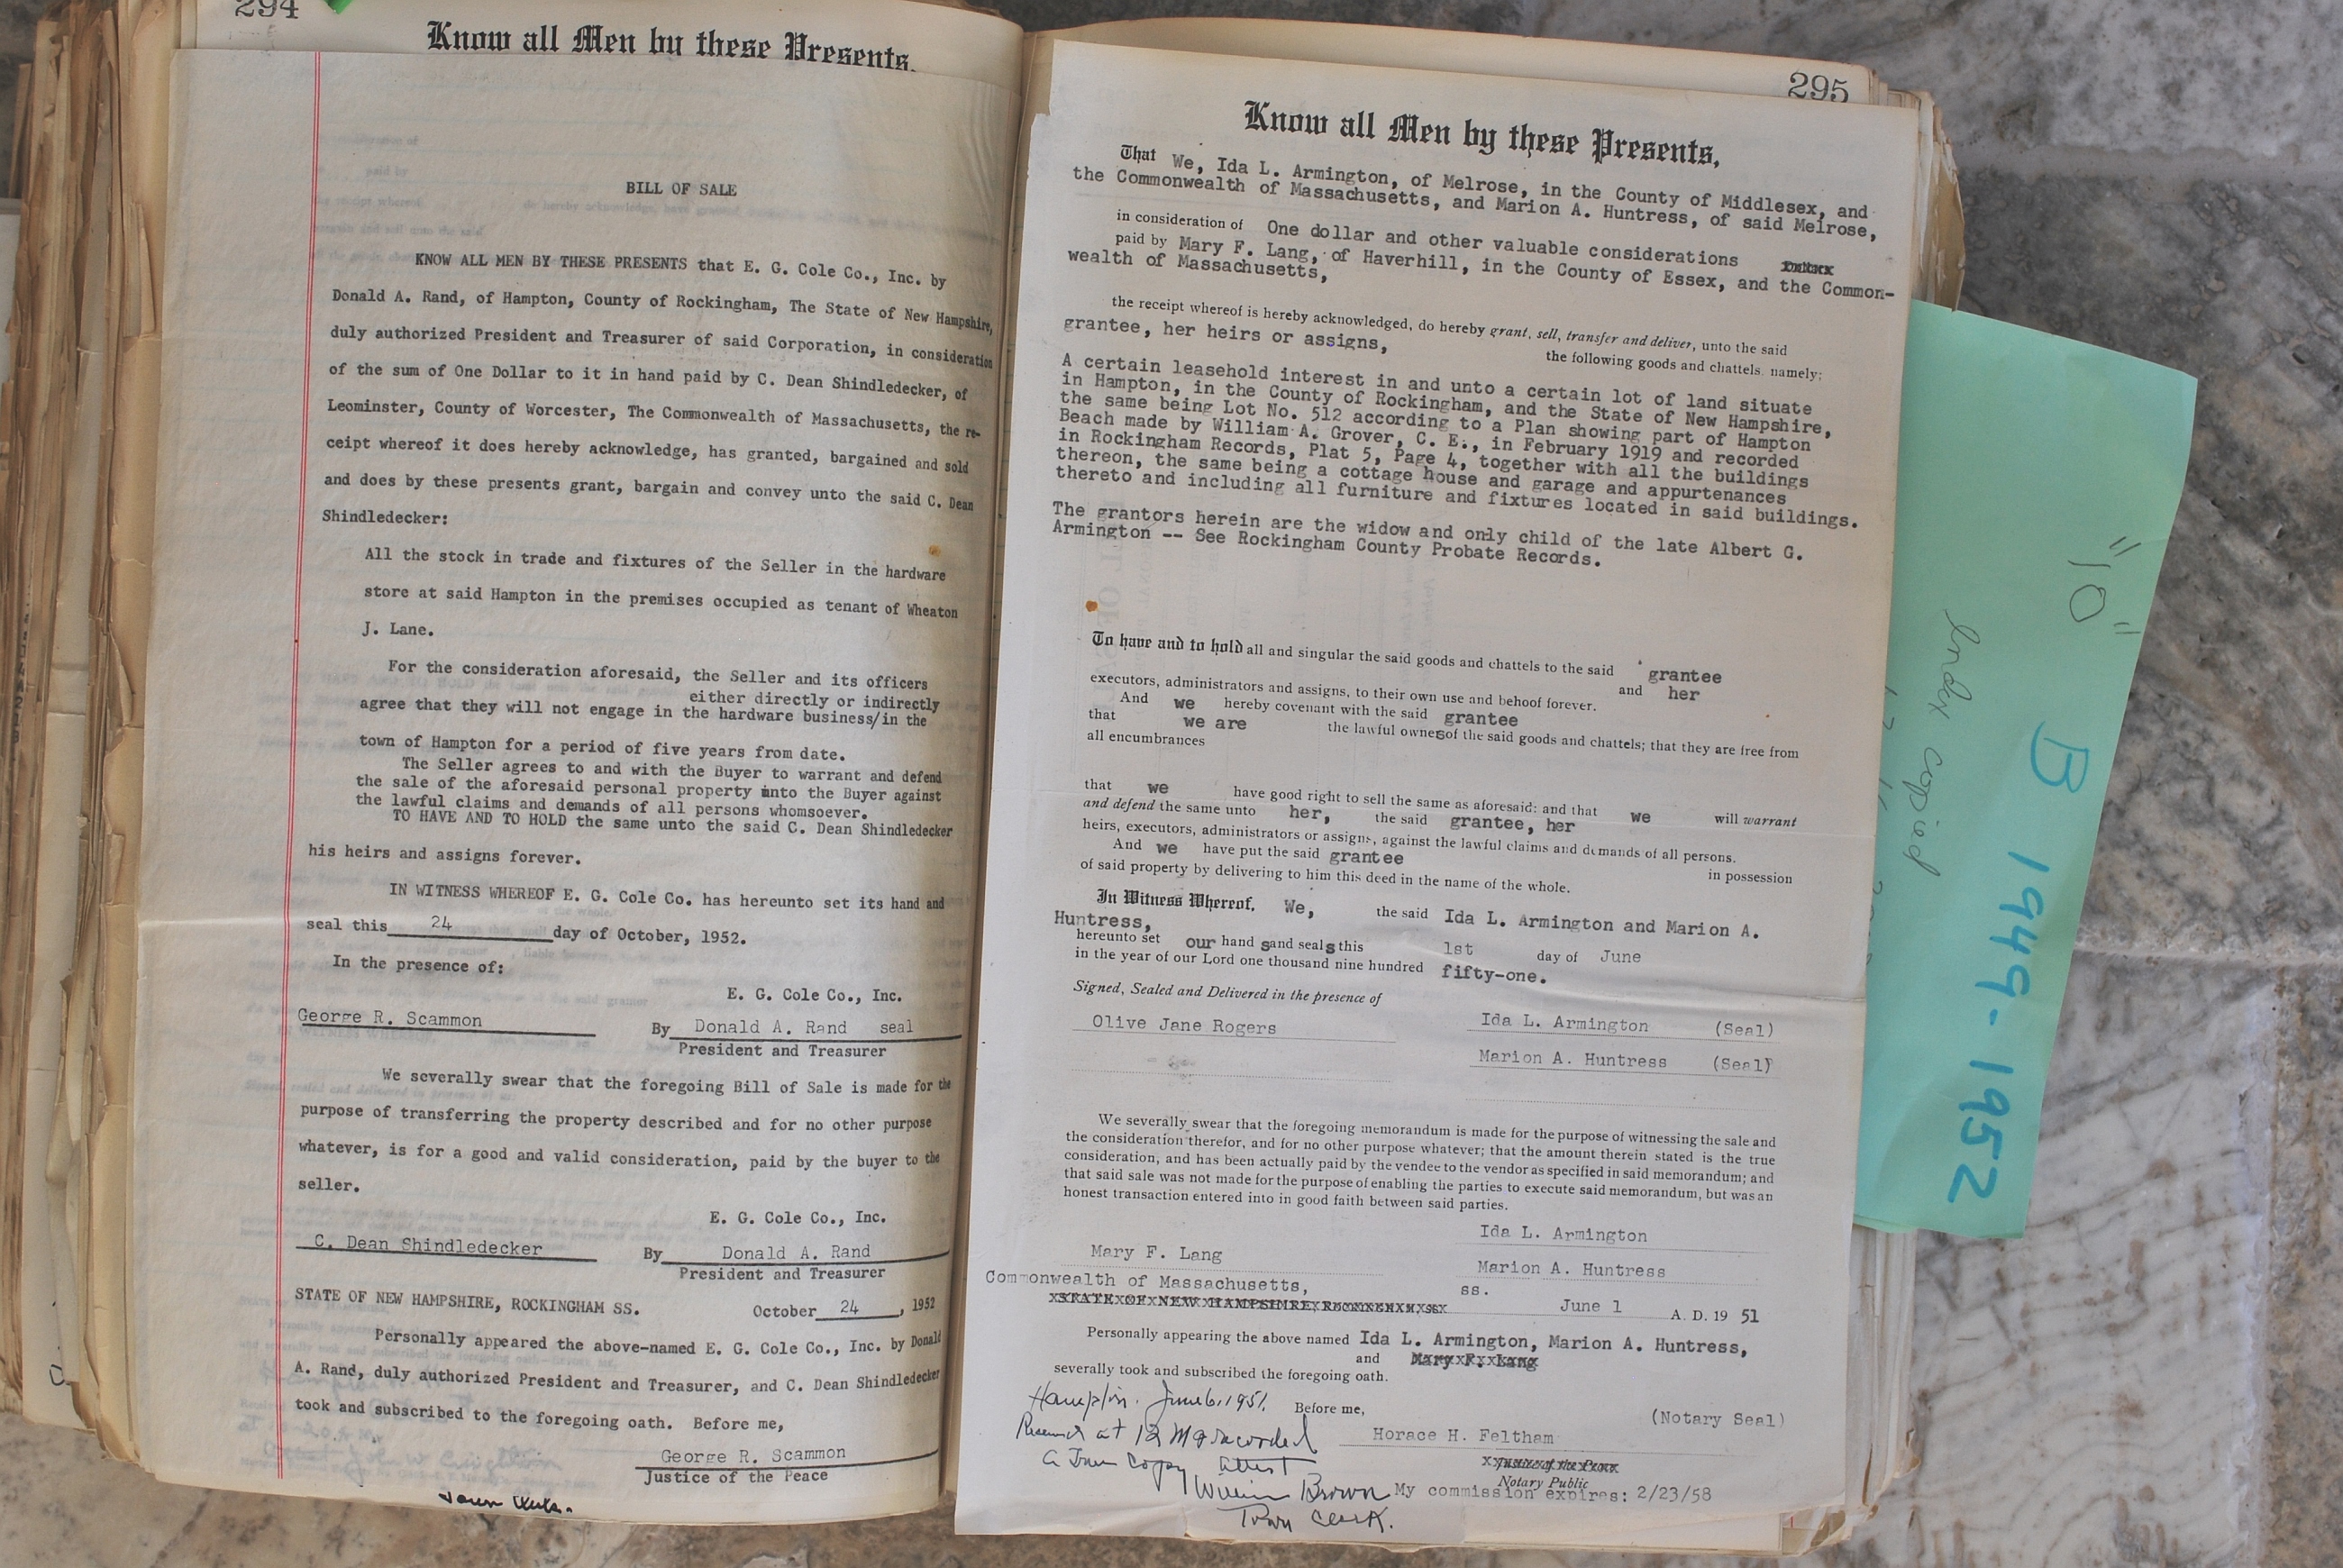 294
Know all Men by these Presents.
BILL OF SALE
KNOW ALL MEN BY THESE PRESENTS that E. G. Cole Co., Inc. by
Donald A. Rand, of Hampton, County of Rockingham, The State of New Hampshire,
duly authorized President and Treasurer of said Corporation, in consideration
of the sum of One Dollar to it in hand paid by C. Dean Shindledecker, of
Leominster, County of Worcester, The Commonwealth of Massachusetts, the re-
ceipt whereof it does hereby acknowledge, has granted, bargained and sold
and does by these presents grant, bargain and convey unto the said C. Dean
Shindledecker:
All the stock in trade and fixtures of the Seller in the hardware
store at said Hampton in the premises occupied as tenant of Wheaton
J. Lane.
For the consideration aforesaid, the Seller and its officers
either directly or indirectly
agree that they will not engage in the hardware business/in the
town of Hampton for a period of five years from date.
The Seller agrees to and with the Buyer to warrant and defend
the sale of the aforesaid personal property unto the Buyer against
the lawful claims and demands of all persons whomsoever.
TO HAVE AND TO HOLD the same unto the said C. Dean Shindledecker
his heirs and assigns forever.
IN WITNESS WHEREOF E. G. Cole Co. has hereunto set its hand and
seal this 24 day of October, 1952.
In the presence of:
E. G. Cole Co., Inc.
George R. Scammon By Donald A. Rand seal
President and Treasurer
We severally swear that the foregoing Bill of Sale is made for the
purpose of transferring the property described and for no other purpose
whatever, is for a good and valid consideration, paid by the buyer to the
seller.
E. G. Cole Co., Inc.
C. Dean Shindledecker By Donald A. Rand
President and Treasurer
STATE OF NEW HAMPSHIRE, ROCKINGHAM SS. October 24, 1952
Personally appeared the above-named E. G. Cole Co., Inc. by Donald
A. Rand, duly authorized President and Treasurer, and C. Dean Shindledecker
took and subscribed to the foregoing oath. Before me,
George R. Scammon
Justice of the Peace
Town Clerk.
295
Know all Men by these Presents,
That We, Ida L. Armington, of Melrose, in the County of Middlesex, and
the Commonwealth of Massachusetts, and Marion A. Huntress, of said Melrose,
in consideration of One dollar and other valuable considerations
paid by Mary F. Lang, of Haverhill, in the County of Essex, and the Common-
wealth of Massachusetts,
the receipt whereof is hereby acknowledged, do hereby grant, sell, transfer and deliver, unto the said
grantee, her heirs or assigns,
the following goods and chattels, namely:
A certain leasehold interest in and unto a certain lot of land situate
in Hampton, in the County of Rockingham, and the State of New Hampshire,
the same being Lot No. 512 according to a Plan showing part of Hampton
Beach made by William A. Grover, C. E., in February 1919 and recorded
in Rockingham Records, Plat 5, Page 4, together with all the buildings
thereon, the same being a cottage house and garage and appurtenances
thereto and including all furniture and fixtures located in said buildings.
The grantors herein are the widow and only child of the late Albert G.
Armington -- See Rockingham County Probate Records.
To have and to hold all and singular the said goods and chattels to the said grantee
and her
executors, administrators and assigns, to their own use and behoof forever.
And we hereby covenant with the said grantee
that we are the lawful ownesof the said goods and chattels; that they are free from
all encumbrances
that we have good right to sell the same as aforesaid: and that we will warrant
and defend the same unto her, the said grantee, her
heirs, executors, administrators or assigns, against the lawful claims and demands of all persons.
And we have put the said grantee in possession
of said property by delivering to him this deed in the name of the whole.
In Witness Whereof, We, the said Ida L. Armington and Marion A.
Huntress,
hereunto set our hand sand seals this 1st day of June
in the year of our Lord one thousand nine hundred fifty-one.
Signed, Sealed and Delivered in the presence of
Olive Jane Rogers Ida L. Armington (Seal)
Marion A. Huntress (Seal)
We severally swear that the foregoing memorandum is made for the purpose of witnessing the sale and
the consideration therefor, and for no other purpose whatever; that the amount therein stated is the true
consideration, and has been actually paid by the vendee to the vendor as specified in said memorandum; and
that said sale was not made for the purpose of enabling the parties to execute said memorandum, but was an
honest transaction entered into in good faith between said parties.
Ida L. Armington
Mary F. Lang Marion A. Huntress
Commonwealth of Massachusetts, ss.
STATE OF NEW HAMPSHIRE, ROCKINGHAM, ss. June 1 A. D. 19 51
Personally appearing the above named Ida L. Armington, Marion A. Huntress,
and Mary F. Lang
severally took and subscribed the foregoing oath.
Hampton. June 6, 1951. Before me, (Notary Seal)
Received at 12 M & recorded Horace H. Feltham
A True Copy Attest Justice of the Peace
Notary Public
William Brown My commission expires: 2/23/58
Town Clerk.
"10"
B 1949-1952
Index copied